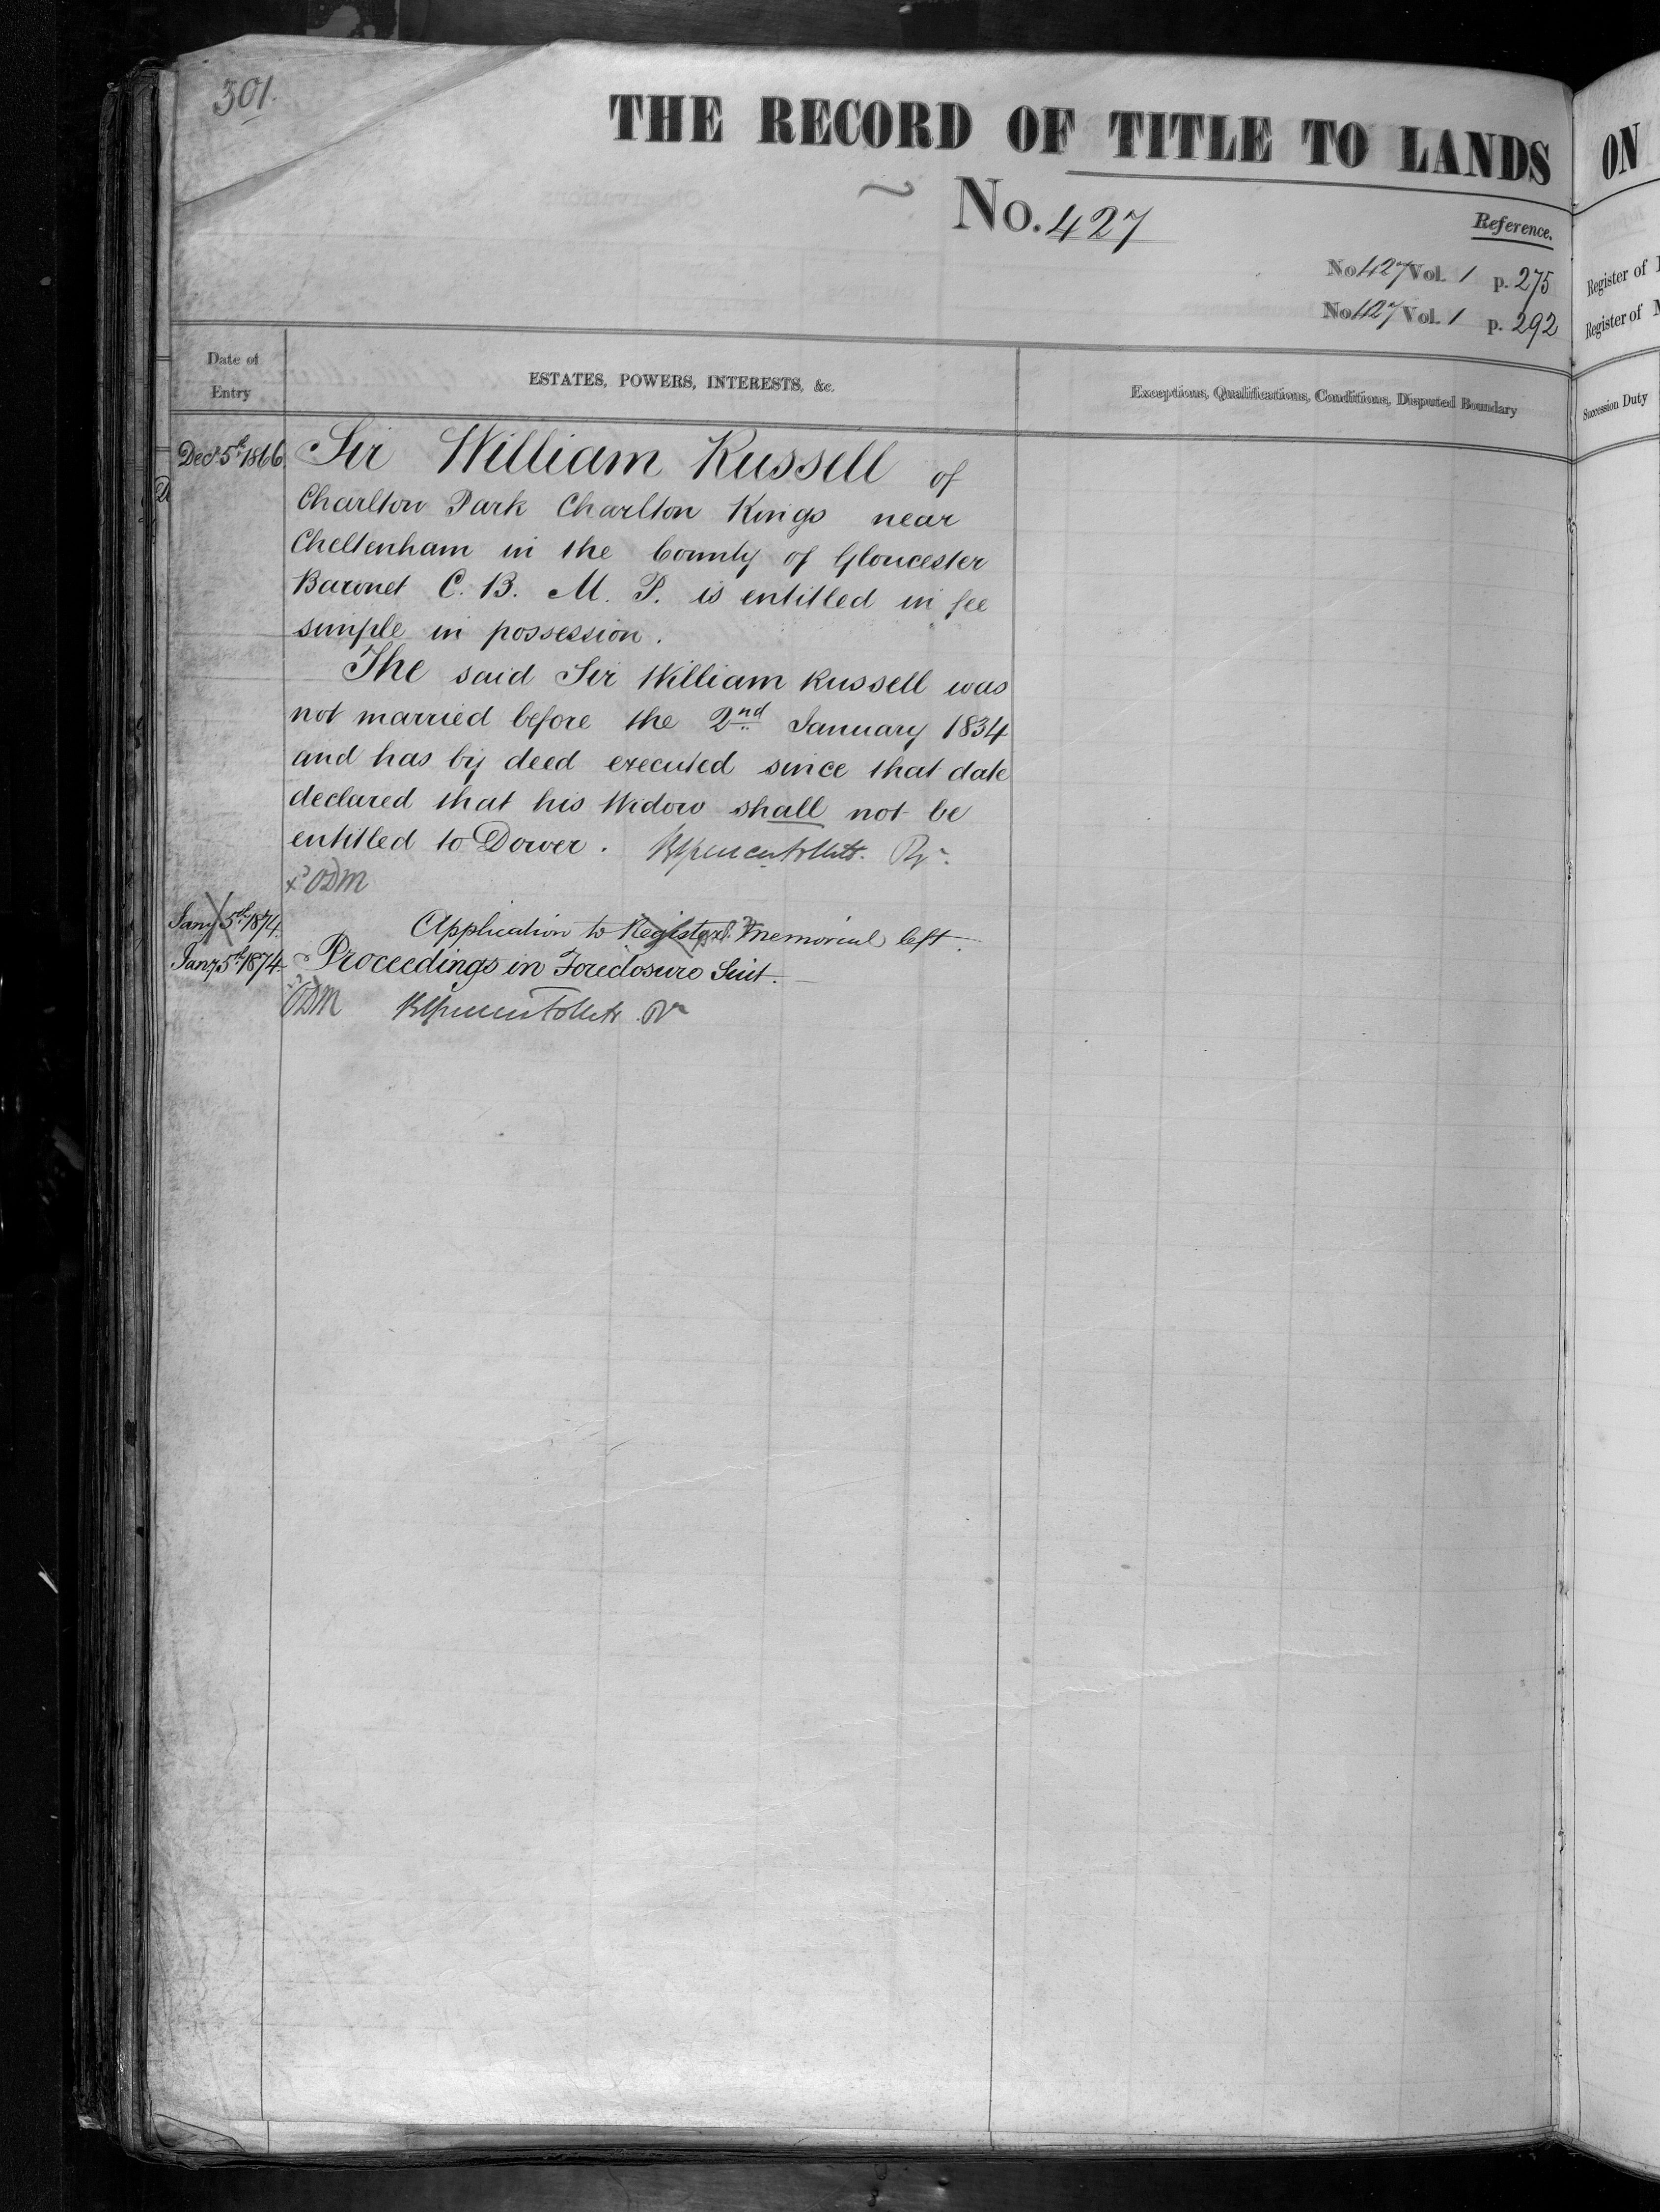 301.
THE RECORD OF TITLE TO LANDS
No. 427
Reference.
No 427 Vol. 1 p. 275
No 427 Vol. 1 p. 292
Date of
Entry
ESTATES, POWERS, INTERESTS, &c.
Exceptions, Qualifications, Conditions, Disputed Boundary
Decr 5th 1866. Sir William Russell of
Charlton Park Charlton Kings near
Cheltenham in the County of Gloucester
Baronet C. B. M. P. is entitled in fee
simple in possession.
The said Sir William Russell was
not married before the 2nd January 1834
and has by deed executed since that date
declared that his Widow shall not be
entitled to Dower.
ODM
Jany 5th 1874. Application to Register memorial left.
Jany 5th 1874. Proceedings in Foreclosure Suit.
ODM
ON
Register of
Register of
Succession Duty